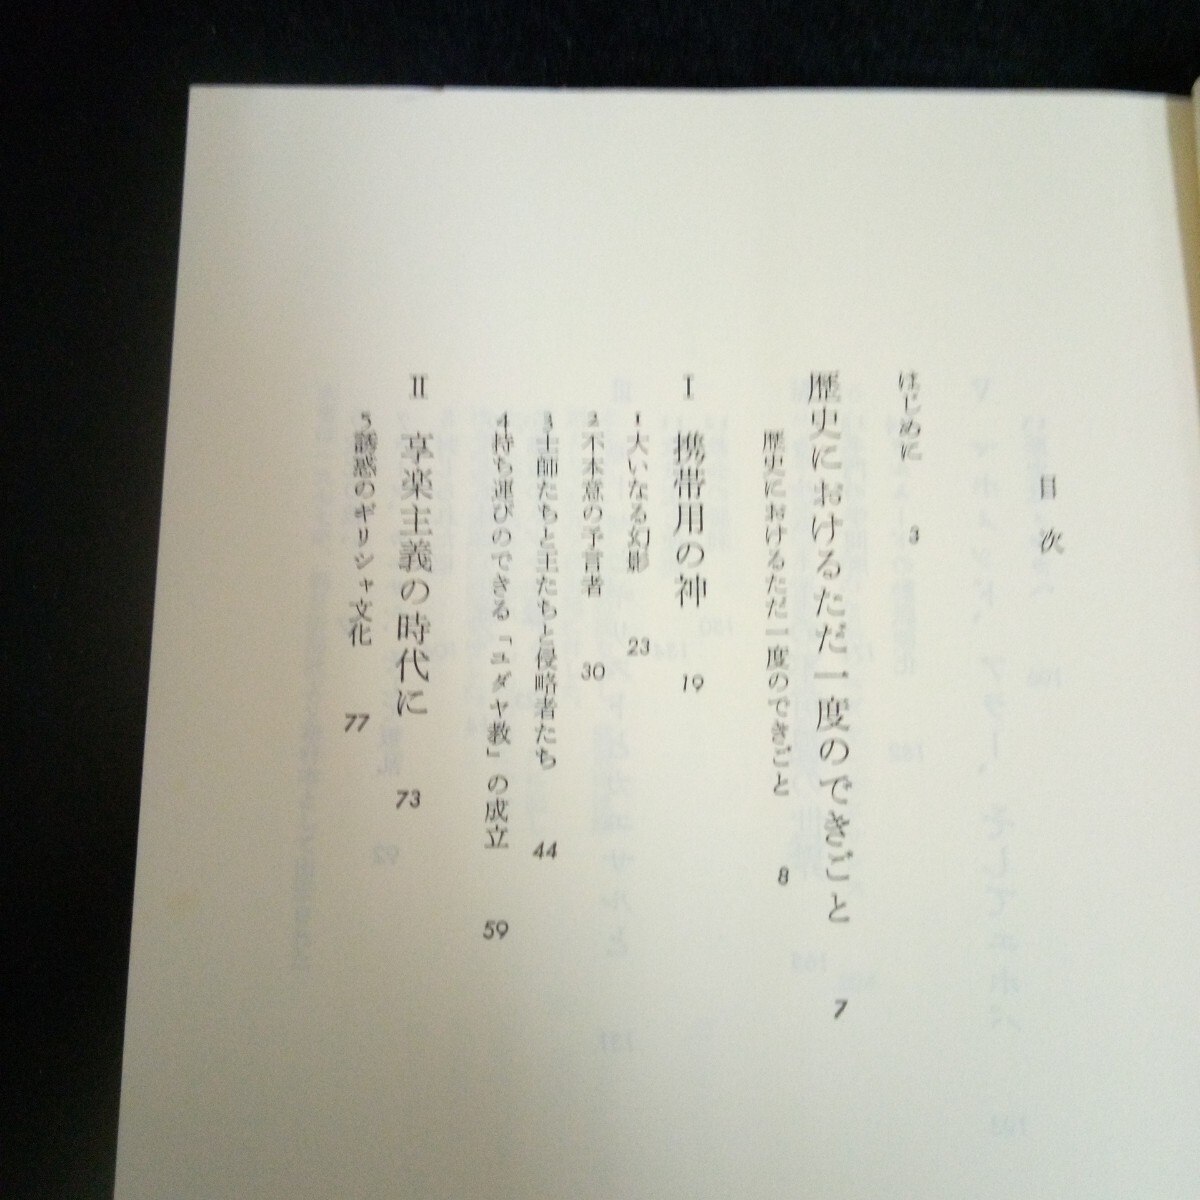 目次
はじめに 3
歴史におけるただ一度のできごと 7
歴史におけるただ一度のできごと 8
I 携帯用の神 19
1 大いなる幻影 23
2 不本意の予言者 30
3 士師たちと王たちと侵略者たち 44
4 持ち運びのできる「ユダヤ教」の成立 59
II 享楽主義の時代に 73
5 誘惑のギリシャ文化 77